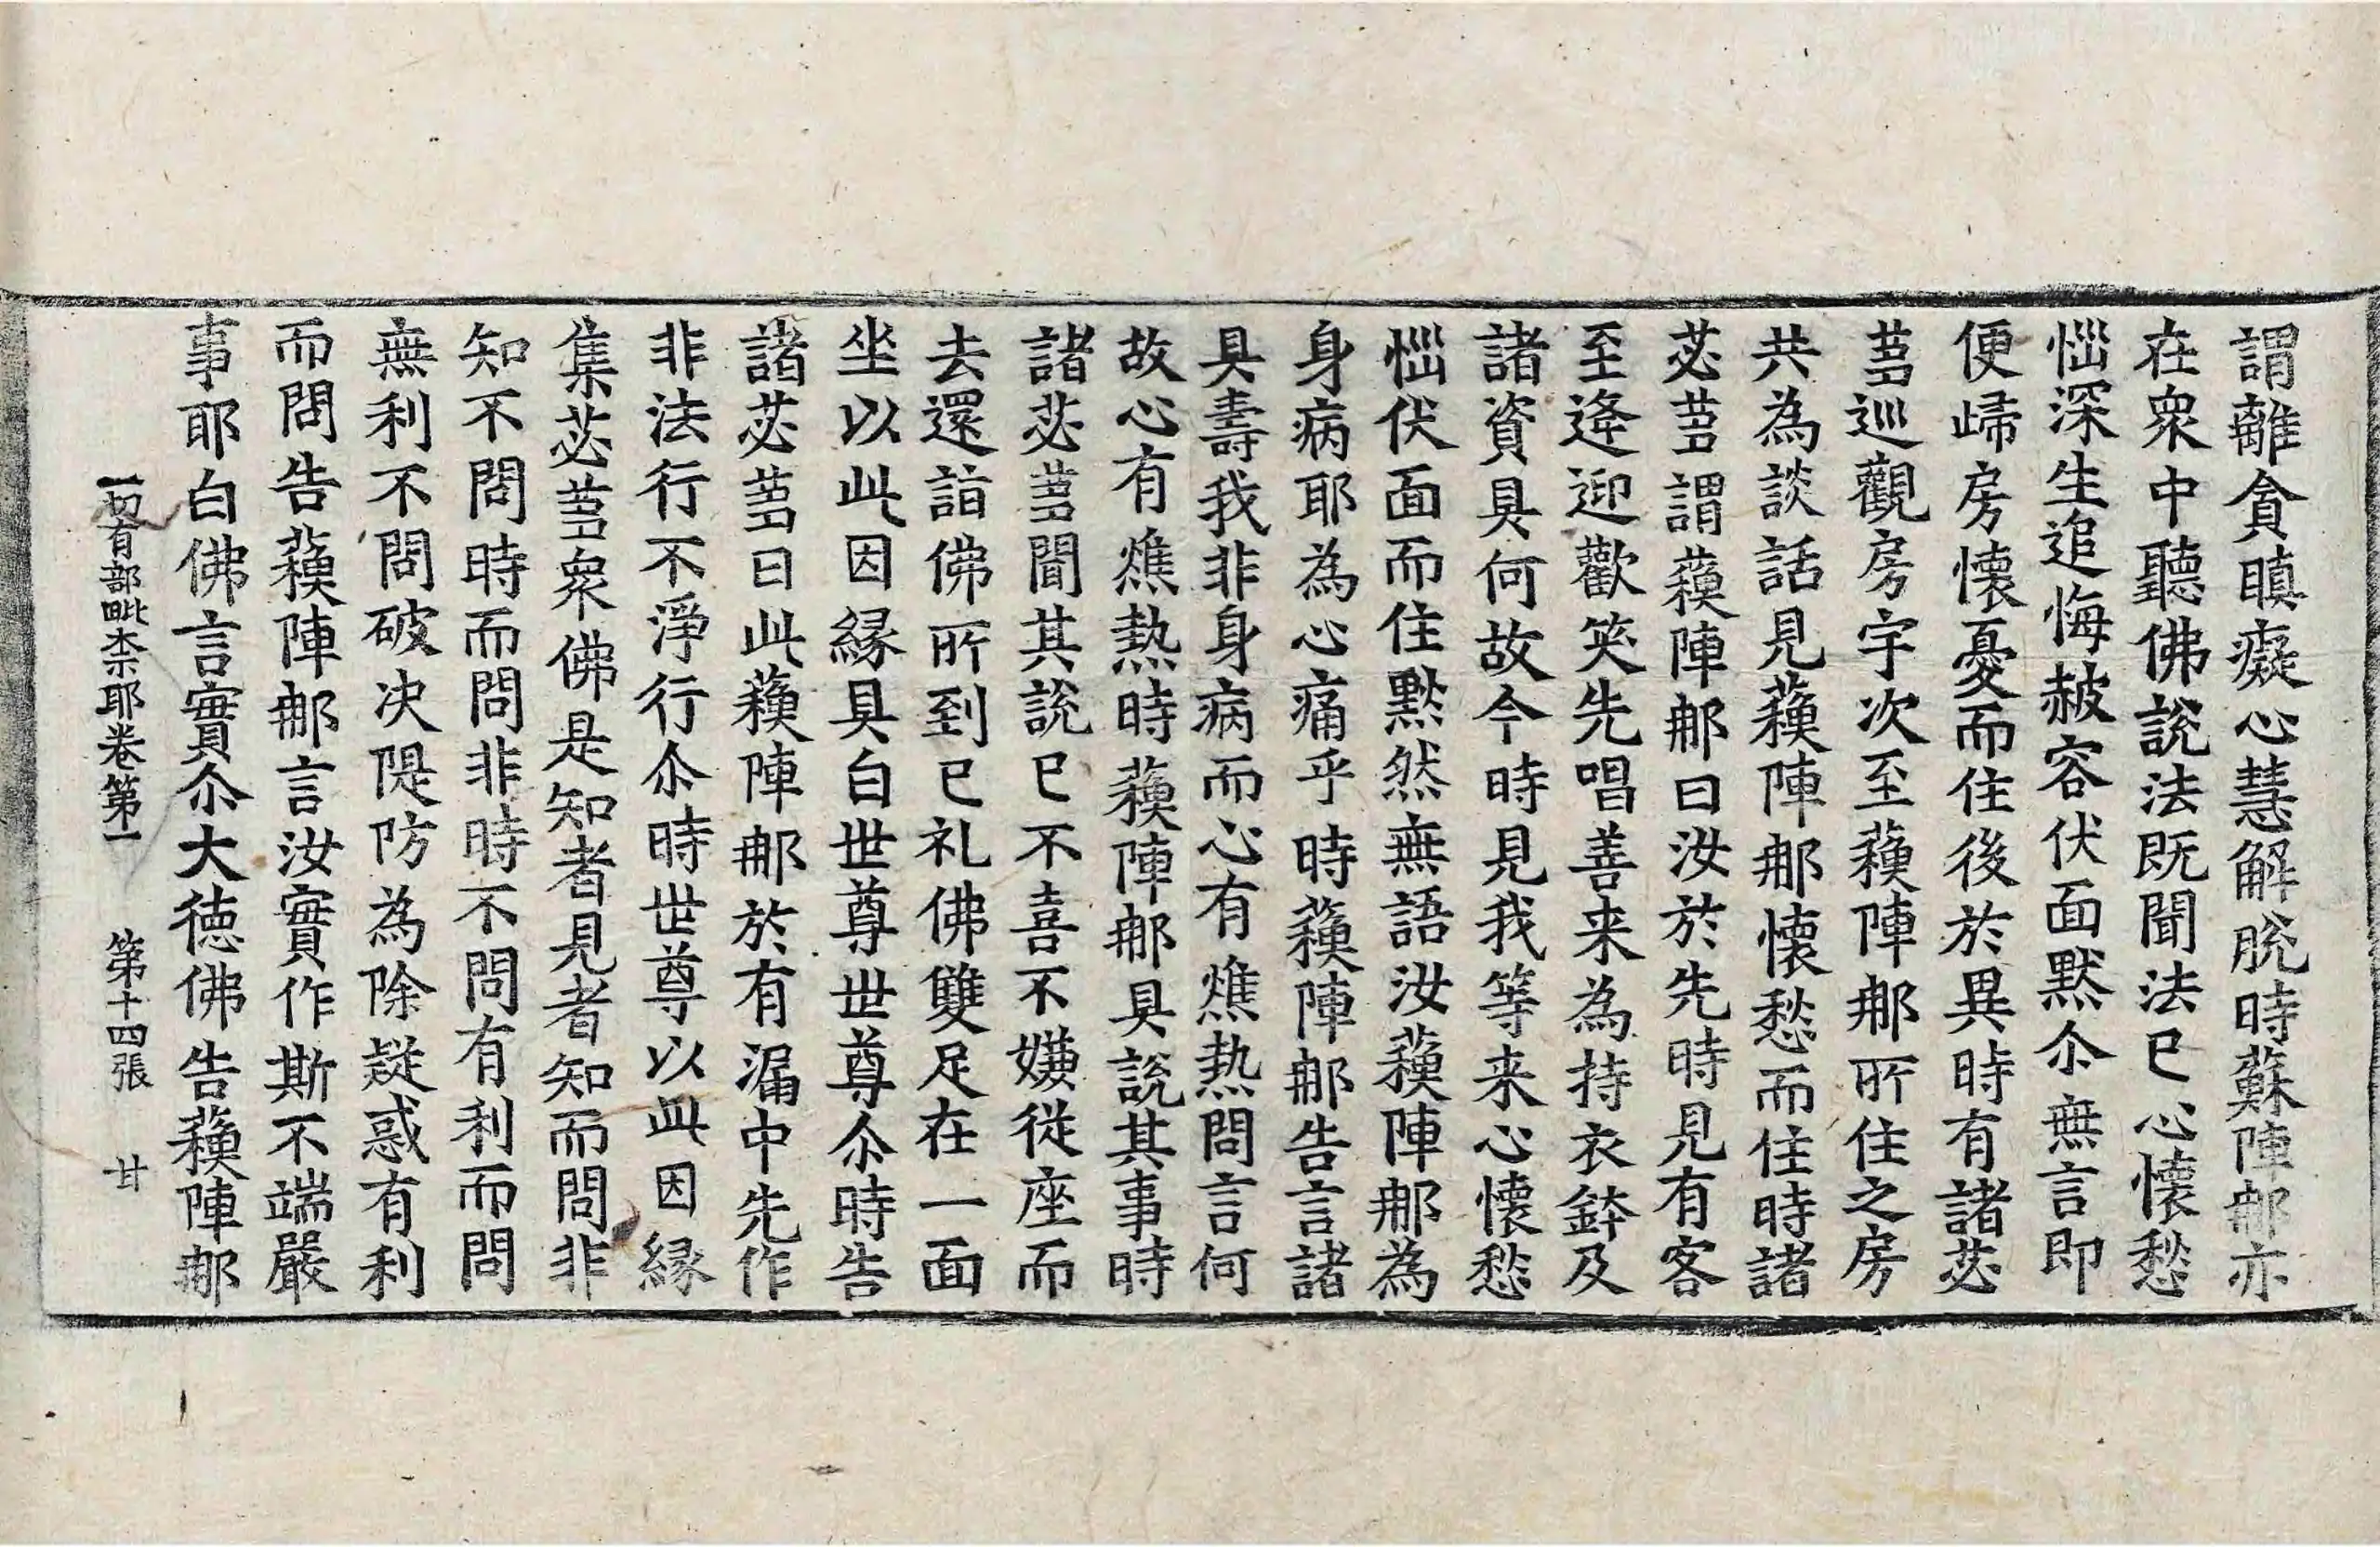 謂離貪瞋癡心慧解脫時蘇陣那亦
在衆中聽佛說法既聞法已心懷愁
惱深生追悔赧容伏面黙尒無言即
便歸房懷憂而住後於異時有諸苾
蒭巡觀房宇次至蘇陣那所住之房
共為談話見蘇陣那懷愁而住時諸
苾蒭謂蘇陣那曰汝於先時見有客
至逄迎歡笑先唱善来為持衣鉢及
諸資具何故今時見我等来心懷愁
惱伏面而住黙然無語汝蘇陣那為
身病耶為心痛乎時蘇陣那告言諸
具壽我非身病而心有燋热問言何
故心有燋熱時蘇陣那具說其事時
諸苾蒭聞其說已不喜不嫌從座而
去還詣佛所到已礼佛雙足在一面
坐以此因緣具白世尊世尊尒時告
諸苾蒭曰此蘇陣那於有漏中先作
非法行不淨行尒時世尊以此因緣
集苾蒭衆佛是知者見者知而問非
知不問時而問非時不問有利而問
無利不問破决隄防為除疑惑有利
而問告蘇陣那言汝實作斯不端嚴
事耶白佛言實尒大徳佛告蘇陣那
一切有部毗柰耶卷第一　第十四張　甘